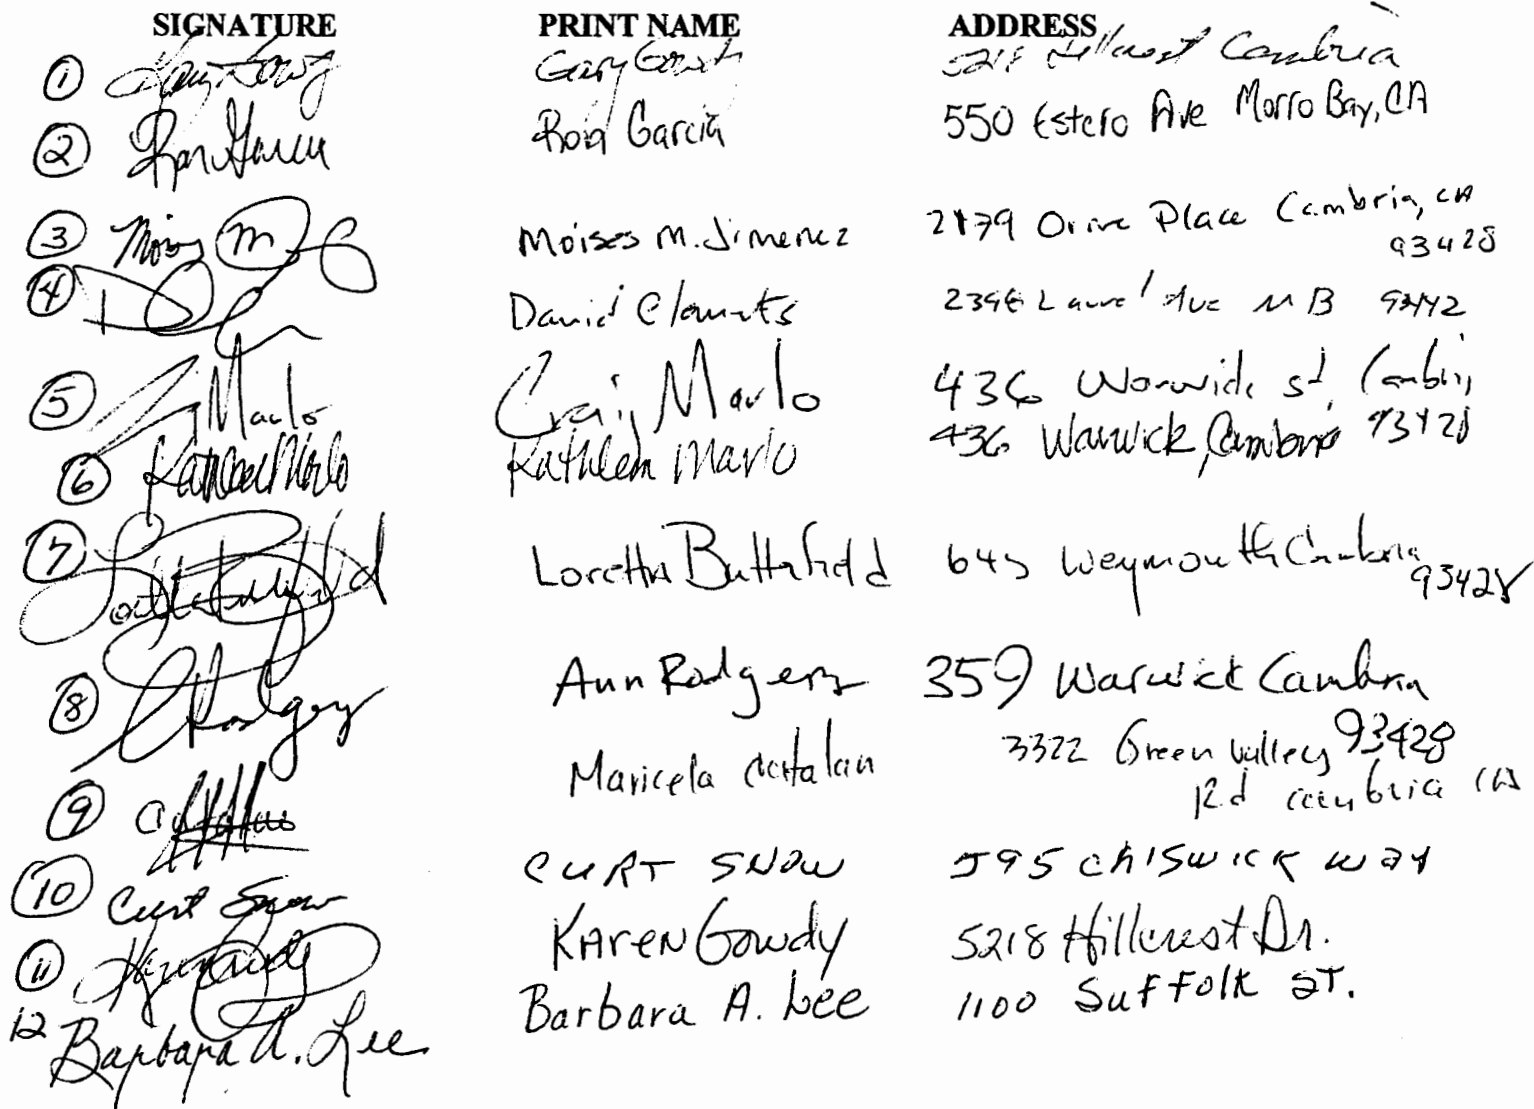 SIGNATURE PRINT NAME ADDRESS
1 Gary Gowdy 5218 Hillcrest Cambria
2 Ron Garcia Ron Garcia 550 Estero Ave Morro Bay, CA
3 Moises M. Jimenez Place Cambria, CA
93428
4 David Clements Laurel Ave MB 93442
5 Marlo Craig Marlo 436 Warwick St, Cambria
93428
6 Kathleen Marlo Kathleen Marlo 436 Warwick, Cambria
7 Loretta Butterfield Loretta Butterfield 645 Weymouth Cambria
93428
8 Rodgers Ann Rodgers 359 Warwick Cambria
93428
9 Maricela Catalan 3322 Green Valley
Rd Cambria CA
10 Curt Snow CURT SNOW 595 CHISWICK WAY
11 Karen Gowdy KAREN Gowdy 5218 Hillcrest Dr.
12 Barbara A. Lee Barbara A. Lee 1100 Suffolk ST.